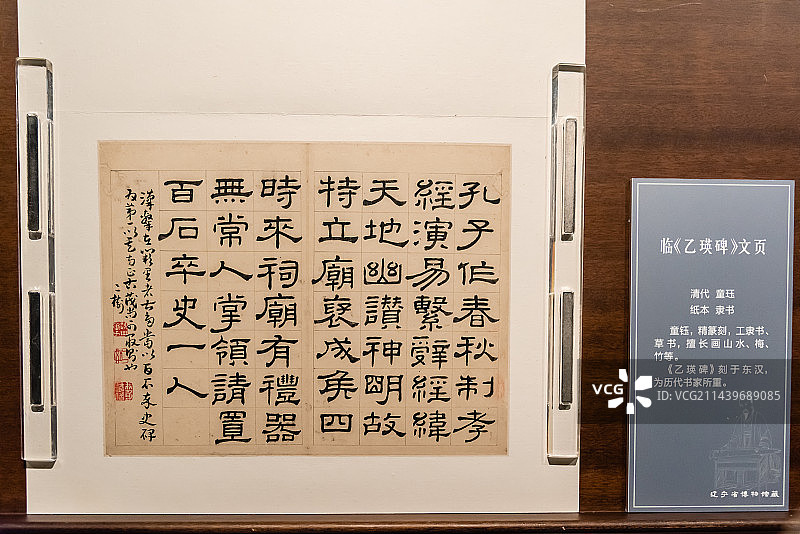 孔子作春秋制孝
經演易繫辭經緯
天地幽讚神明故
特立廟褒成侯四
時來祠廟有禮器
無常人掌領請置
百石卒史一人
漢隸在 里者 百石卒史碑
為第一
二樹
临《乙瑛碑》文页
清代 童珏
纸本 隶书
童钰，精篆刻，工隶书、
草书，擅长画山水、梅、
竹等。
《乙瑛碑》刻于东汉，
为历代书家所重。
辽宁省博物馆藏
VCG
视觉中国
ID: VCG211439689085